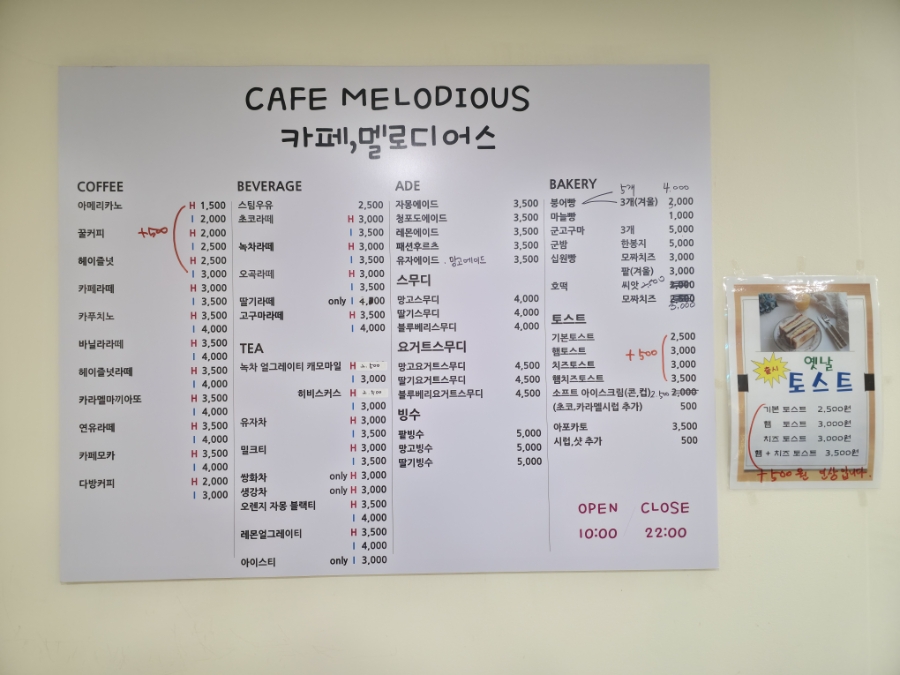 CAFE MELODIOUS
카페,멜로디어스
COFFEE
아메리카노 H 1,500
I 2,000
꿀커피 H 2,000
I 2,500
헤이즐넛 H 2,500
I 3,000
+500
카페라떼 H 3,000
I 3,500
카푸치노 H 3,500
I 4,000
바닐라라떼 H 3,500
I 4,000
헤이즐넛라떼 H 3,500
I 4,000
카라멜마끼아또 H 3,500
I 4,000
연유라떼 H 3,500
I 4,000
카페모카 H 3,500
I 4,000
다방커피 H 2,000
I 3,000
BEVERAGE
스팀우유 2,500
초코라떼 H 3,000
I 3,500
녹차라떼 H 3,000
I 3,500
오곡라떼 H 3,000
I 3,500
딸기라떼 only I 4,000
고구마라떼 H 3,500
I 4,000
TEA
녹차 얼그레이티 캐모마일 H 2,500
I 3,000
히비스커스 H 2,500
I 3,000
유자차 H 3,000
I 3,500
밀크티 H 3,000
I 3,500
쌍화차 only H 3,000
생강차 only H 3,000
오렌지 자몽 블랙티 H 3,500
I 4,000
레몬얼그레이티 H 3,500
I 4,000
아이스티 only I 3,000
ADE
자몽에이드 3,500
청포도에이드 3,500
레몬에이드 3,500
패션후르츠 3,500
유자에이드 . 망고에이드 3,500
스무디
망고스무디 4,000
딸기스무디 4,000
블루베리스무디 4,000
요거트스무디
망고요거트스무디 4,500
딸기요거트스무디 4,500
블루베리요거트스무디 4,500
빙수
팥빙수 5,000
망고빙수 5,000
딸기빙수 5,000
BAKERY
5개 4000
붕어빵 3개(겨울) 2,000
마늘빵 1,000
군고구마 3개 5,000
군밤 한봉지 5,000
십원빵 모짜치즈 3,000
팥(겨울) 3,000
호떡 씨앗
모짜치즈
5,000
토스트
기본토스트 2,500
햄토스트 3,000
치즈토스트 3,000
햄치즈토스트 3,500
+500
소프트 아이스크림(콘,컵) 2,500 2,000
(초코,카라멜시럽 추가) 500
아포카토 3,500
시럽,샷 추가 500
OPEN CLOSE
10:00 22:00
출시
옛날
토스트
기본 토스트 2,500원
햄 토스트 3,000원
치즈 토스트 3,000원
햄 + 치즈 토스트 3,500원
+500원 인상입니다.